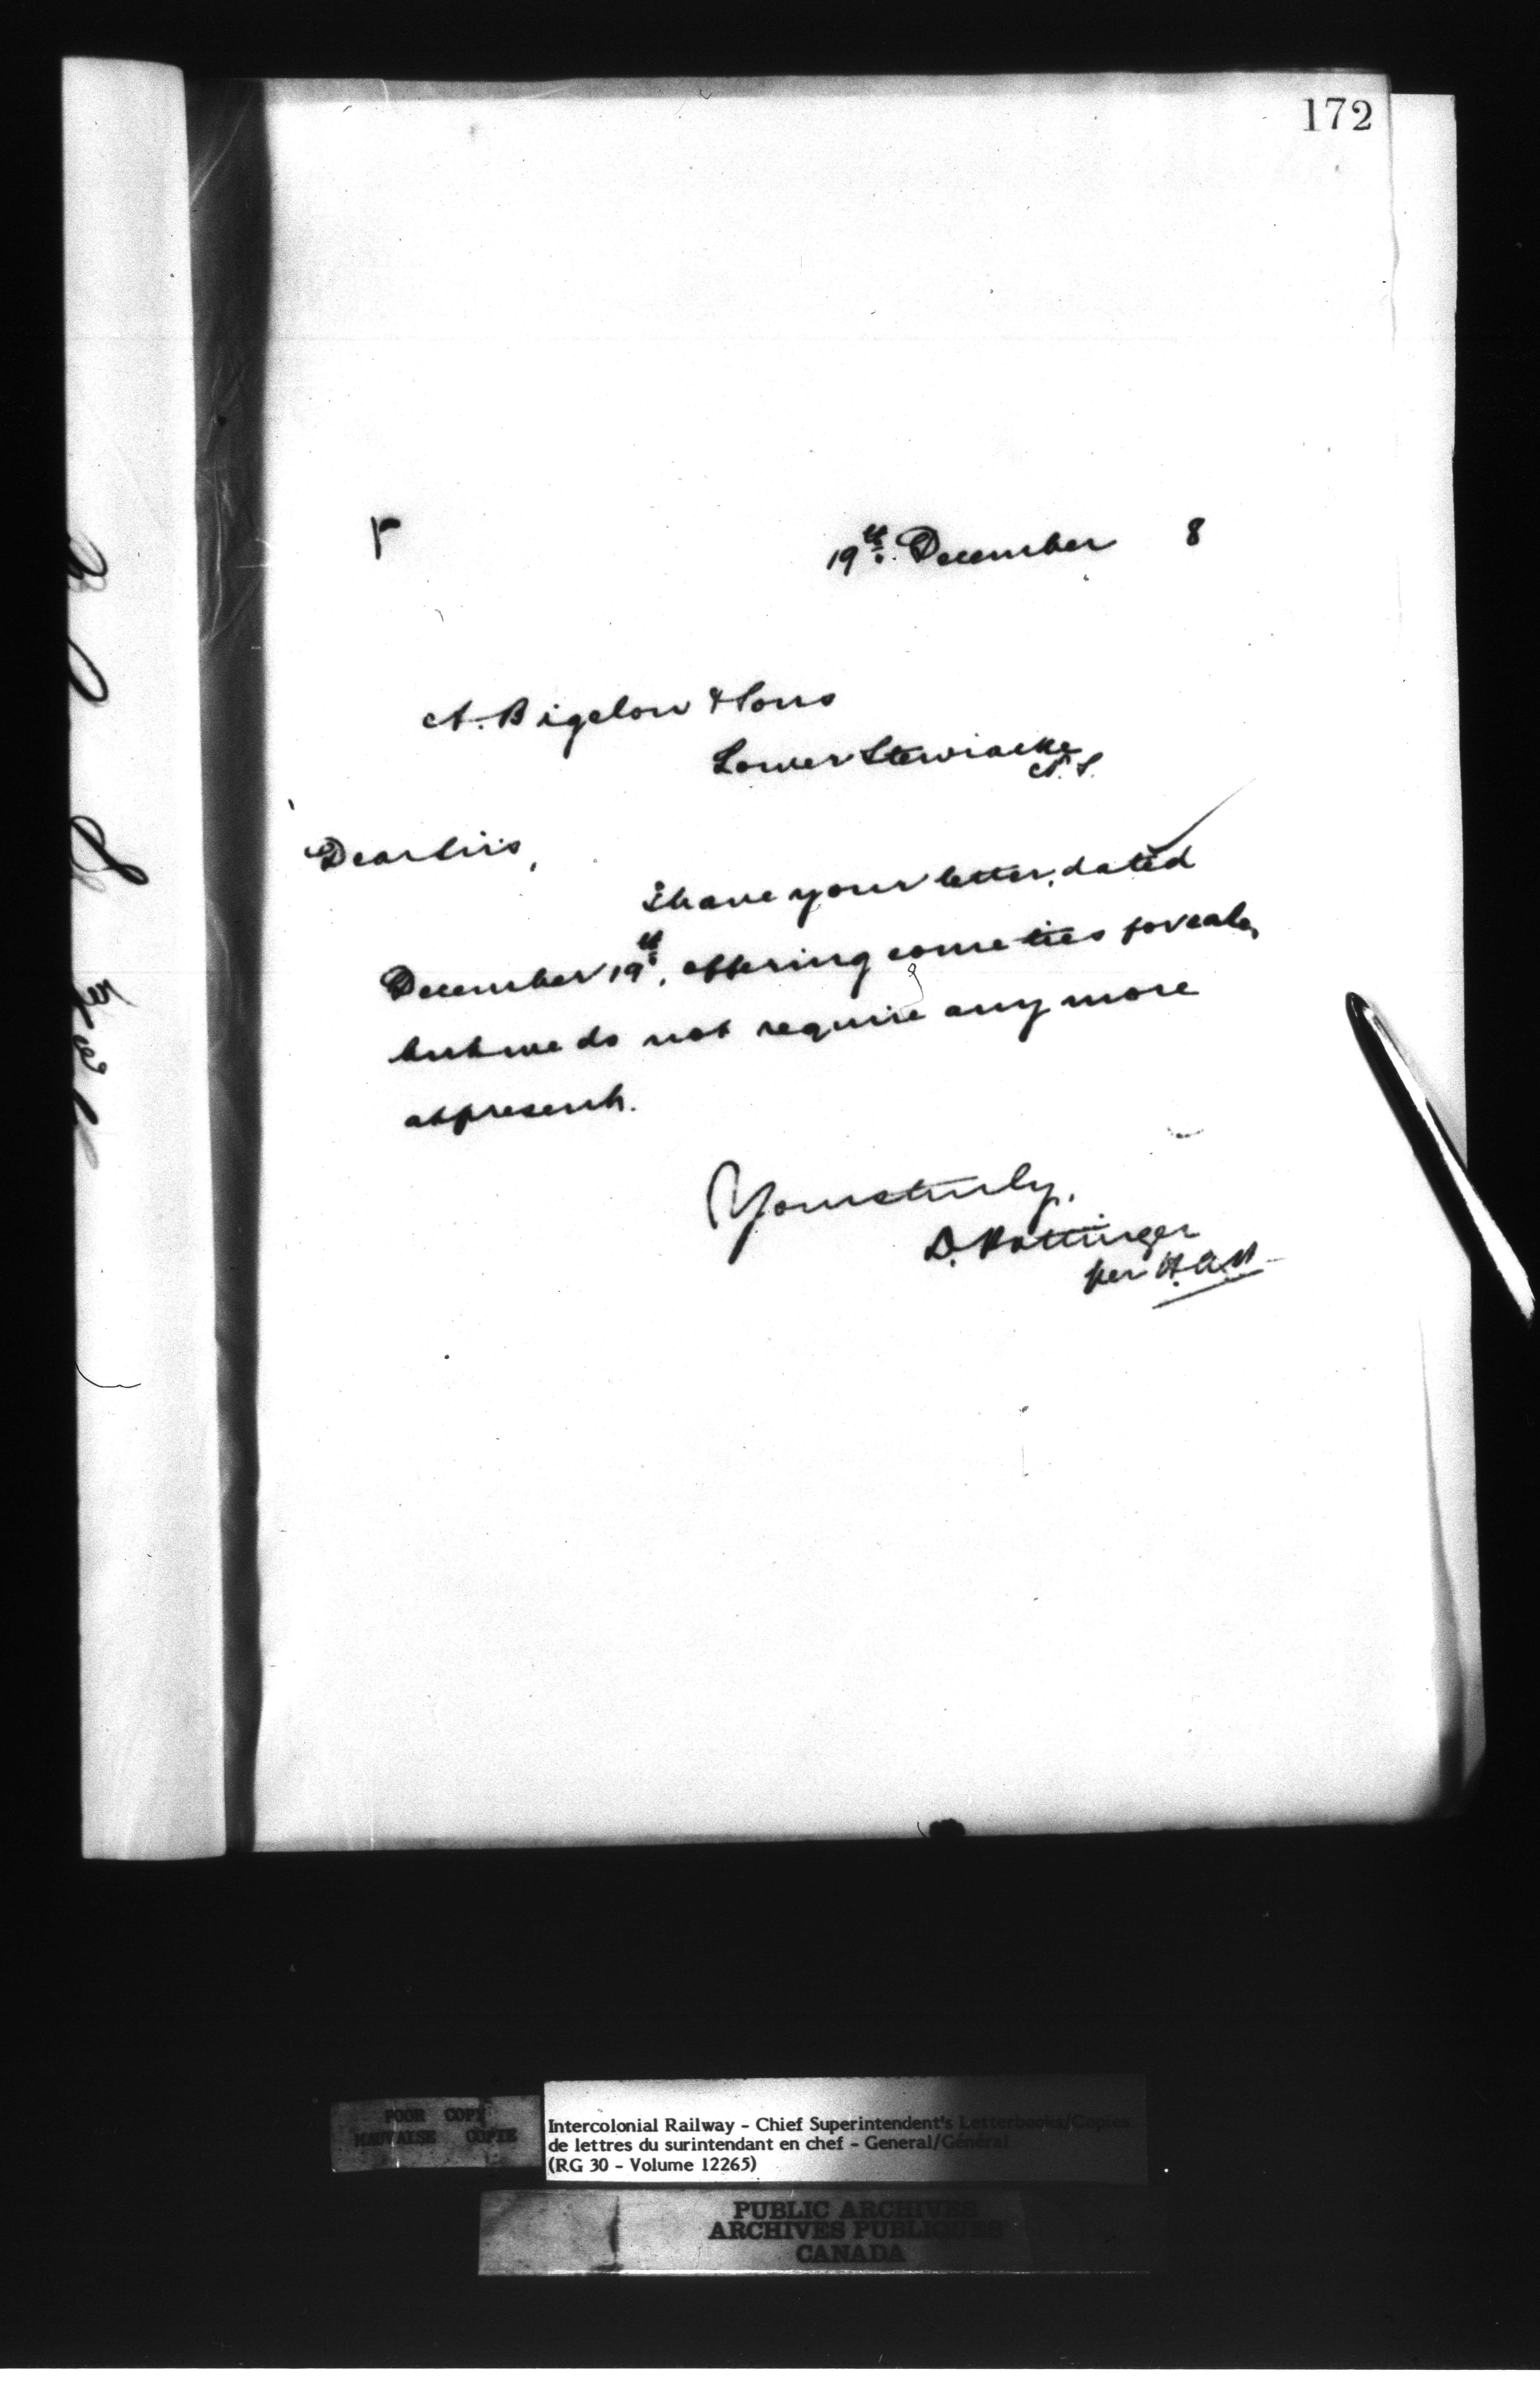 172
19th. December 8
A. Bigelow & Sons
Lower Stewiacke
N.S.
Dear Sirs,
I have your letter, dated
December 19th, offering some ties for sale,
but we do not require any more
at present.
Yours truly,
D. Pottinger
per
POOR COPY
MAUVAISE COPIE
Intercolonial Railway - Chief Superintendent's Letterbooks/Copies
de lettres du surintendant en chef - General/Général
(RG 30 - Volume 12265)
PUBLIC ARCHIVES
ARCHIVES PUBLIQUES
CANADA